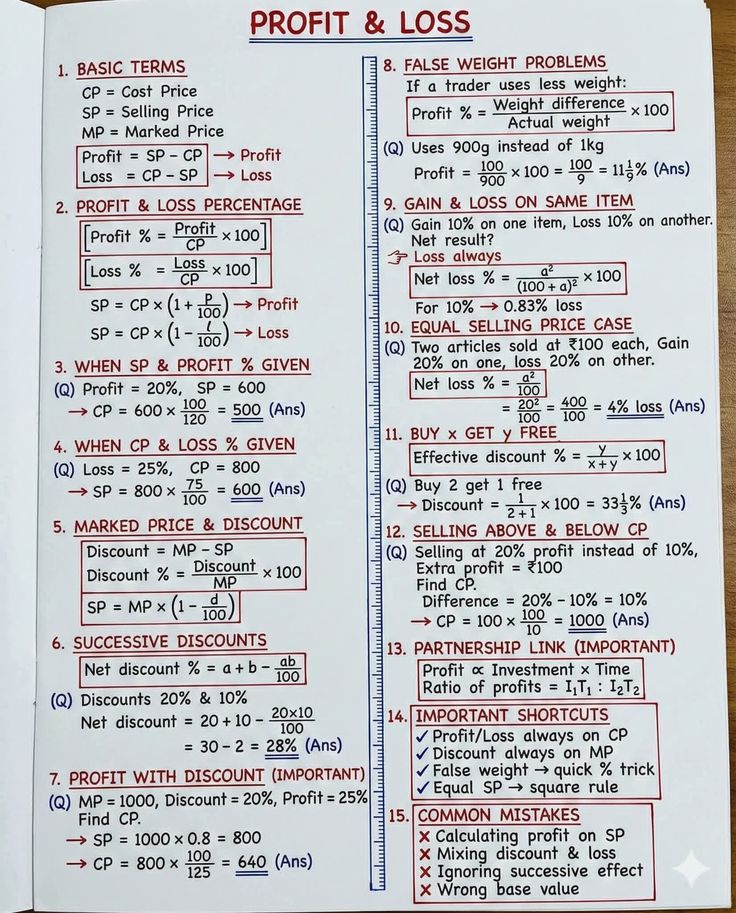 PROFIT & LOSS
1. BASIC TERMS
CP = Cost Price
SP = Selling Price
MP = Marked Price
Profit = SP – CP → Profit
Loss = CP – SP → Loss
2. PROFIT & LOSS PERCENTAGE
[Profit % = Profit/CP × 100]
[Loss % = Loss/CP × 100]
SP = CP × (1 + p/100) → Profit
SP = CP × (1 – l/100) → Loss
3. WHEN SP & PROFIT % GIVEN
(Q) Profit = 20%, SP = 600
→ CP = 600 × 100/120 = 500 (Ans)
4. WHEN CP & LOSS % GIVEN
(Q) Loss = 25%, CP = 800
→ SP = 800 × 75/100 = 600 (Ans)
5. MARKED PRICE & DISCOUNT
Discount = MP – SP
Discount % = Discount/MP × 100
SP = MP × (1 – d/100)
6. SUCCESSIVE DISCOUNTS
Net discount % = a + b – ab/100
(Q) Discounts 20% & 10%
Net discount = 20 + 10 – 20×10/100
= 30 – 2 = 28% (Ans)
7. PROFIT WITH DISCOUNT (IMPORTANT)
(Q) MP = 1000, Discount = 20%, Profit = 25%
Find CP.
→ SP = 1000 × 0.8 = 800
→ CP = 800 × 100/125 = 640 (Ans)
8. FALSE WEIGHT PROBLEMS
If a trader uses less weight:
Profit % = Weight difference/Actual weight × 100
(Q) Uses 900g instead of 1kg
Profit = 100/900 × 100 = 100/9 = 11 1/9% (Ans)
9. GAIN & LOSS ON SAME ITEM
(Q) Gain 10% on one item, Loss 10% on another.
Net result?
☞ Loss always
Net loss % = a²/(100 + a)² × 100
For 10% → 0.83% loss
10. EQUAL SELLING PRICE CASE
(Q) Two articles sold at ₹100 each, Gain
20% on one, loss 20% on other.
Net loss % = a²/100
= 20²/100 = 400/100 = 4% loss (Ans)
11. BUY x GET y FREE
Effective discount % = y/x+y × 100
(Q) Buy 2 get 1 free
→ Discount = 1/2+1 × 100 = 33 1/3% (Ans)
12. SELLING ABOVE & BELOW CP
(Q) Selling at 20% profit instead of 10%,
Extra profit = ₹100
Find CP.
Difference = 20% – 10% = 10%
→ CP = 100 × 100/10 = 1000 (Ans)
13. PARTNERSHIP LINK (IMPORTANT)
Profit ∝ Investment × Time
Ratio of profits = I₁T₁ : I₂T₂
14. IMPORTANT SHORTCUTS
✓ Profit/Loss always on CP
✓ Discount always on MP
✓ False weight → quick % trick
✓ Equal SP → square rule
15. COMMON MISTAKES
✗ Calculating profit on SP
✗ Mixing discount & loss
✗ Ignoring successive effect
✗ Wrong base value